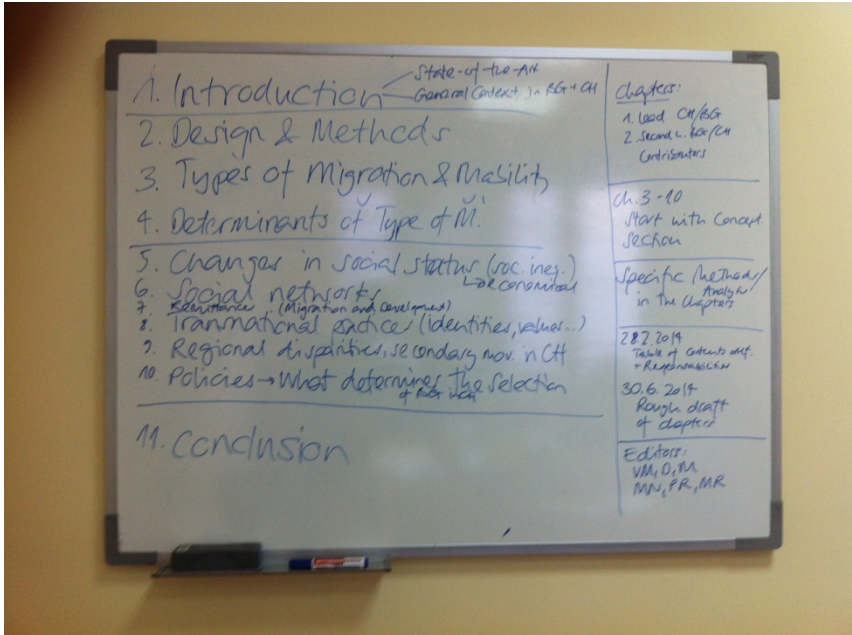 1. Introduction
State-of-the-Art
General Context in BG + CH
2. Design & Methods
3. Types of Migration & Mobility
4. Determinants of Type of M.
5. Changes in social status (soc. ineq.)
6. Social networks
economical
7. Remittances (Migration and Development)
8. Transnational practice (identities, values...)
9. Regional disparities, secondary mov. in CH
10. Policies → What determines the selection
of BG in CH
11. Conclusion
Chapters:
1. Lead CH/BG
2. Second c. BG/CH
Contributors
Ch. 3-10
Start with Concept.
Section
Specific Methods/
Analysis
in the chapters
28.2.2014
Table of contents def.
30.6.2014
Rough draft
of chapters
Editors:
VM, D,
MN, PR, MR